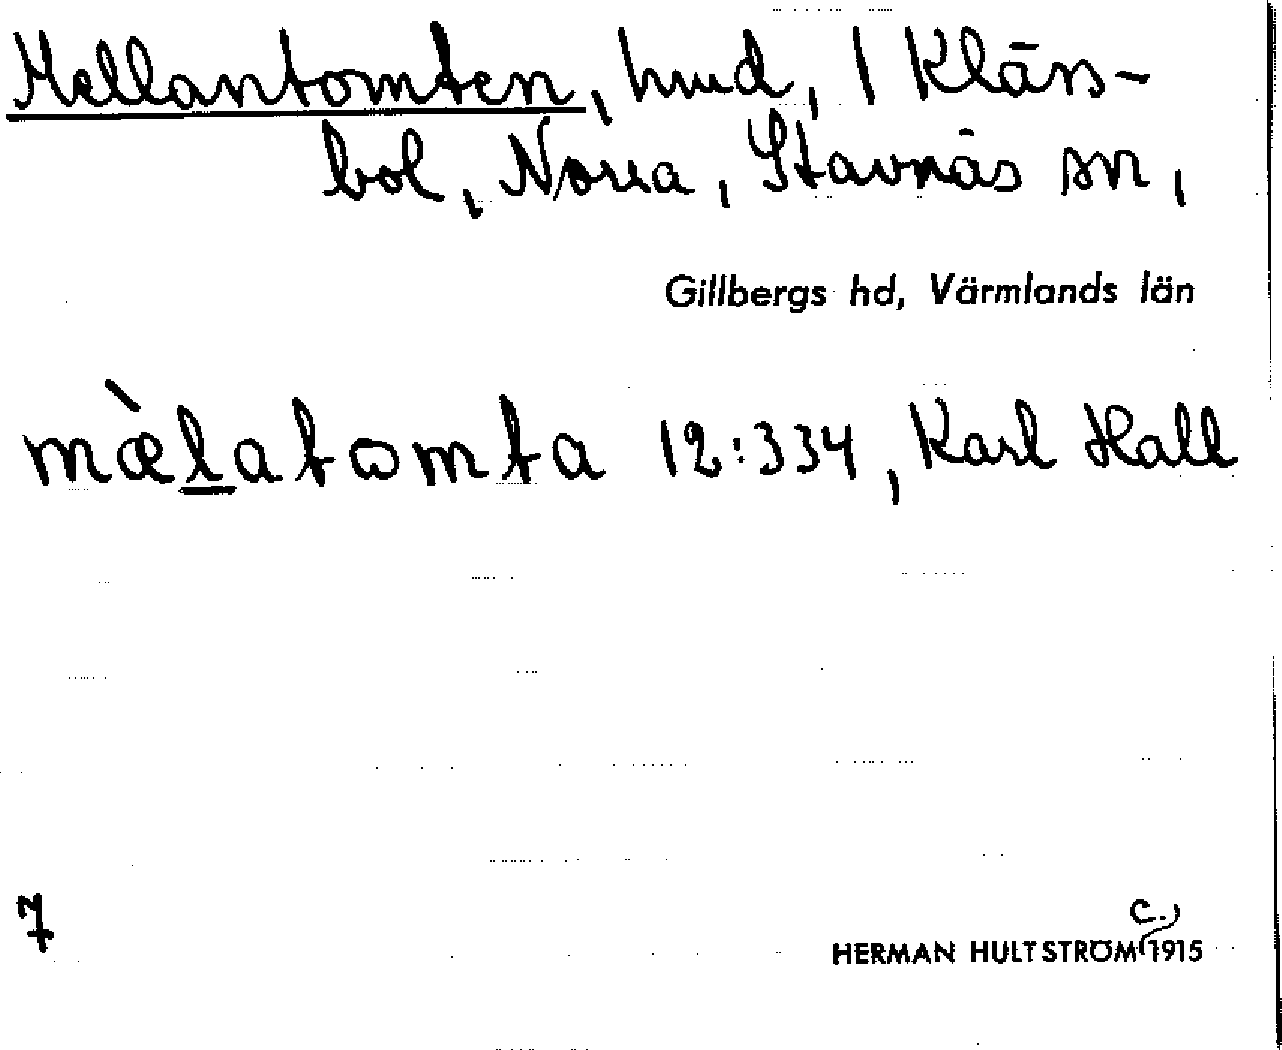 Mellantomten, hmd, 1 Kläss-
bol, Norra, Stavnäs sn,
Gillbergs hd, Värmlands län
mæ̀l̲atωmta 12:334, Karl Hall
7
c.
HERMAN HULTSTRÖM 1915